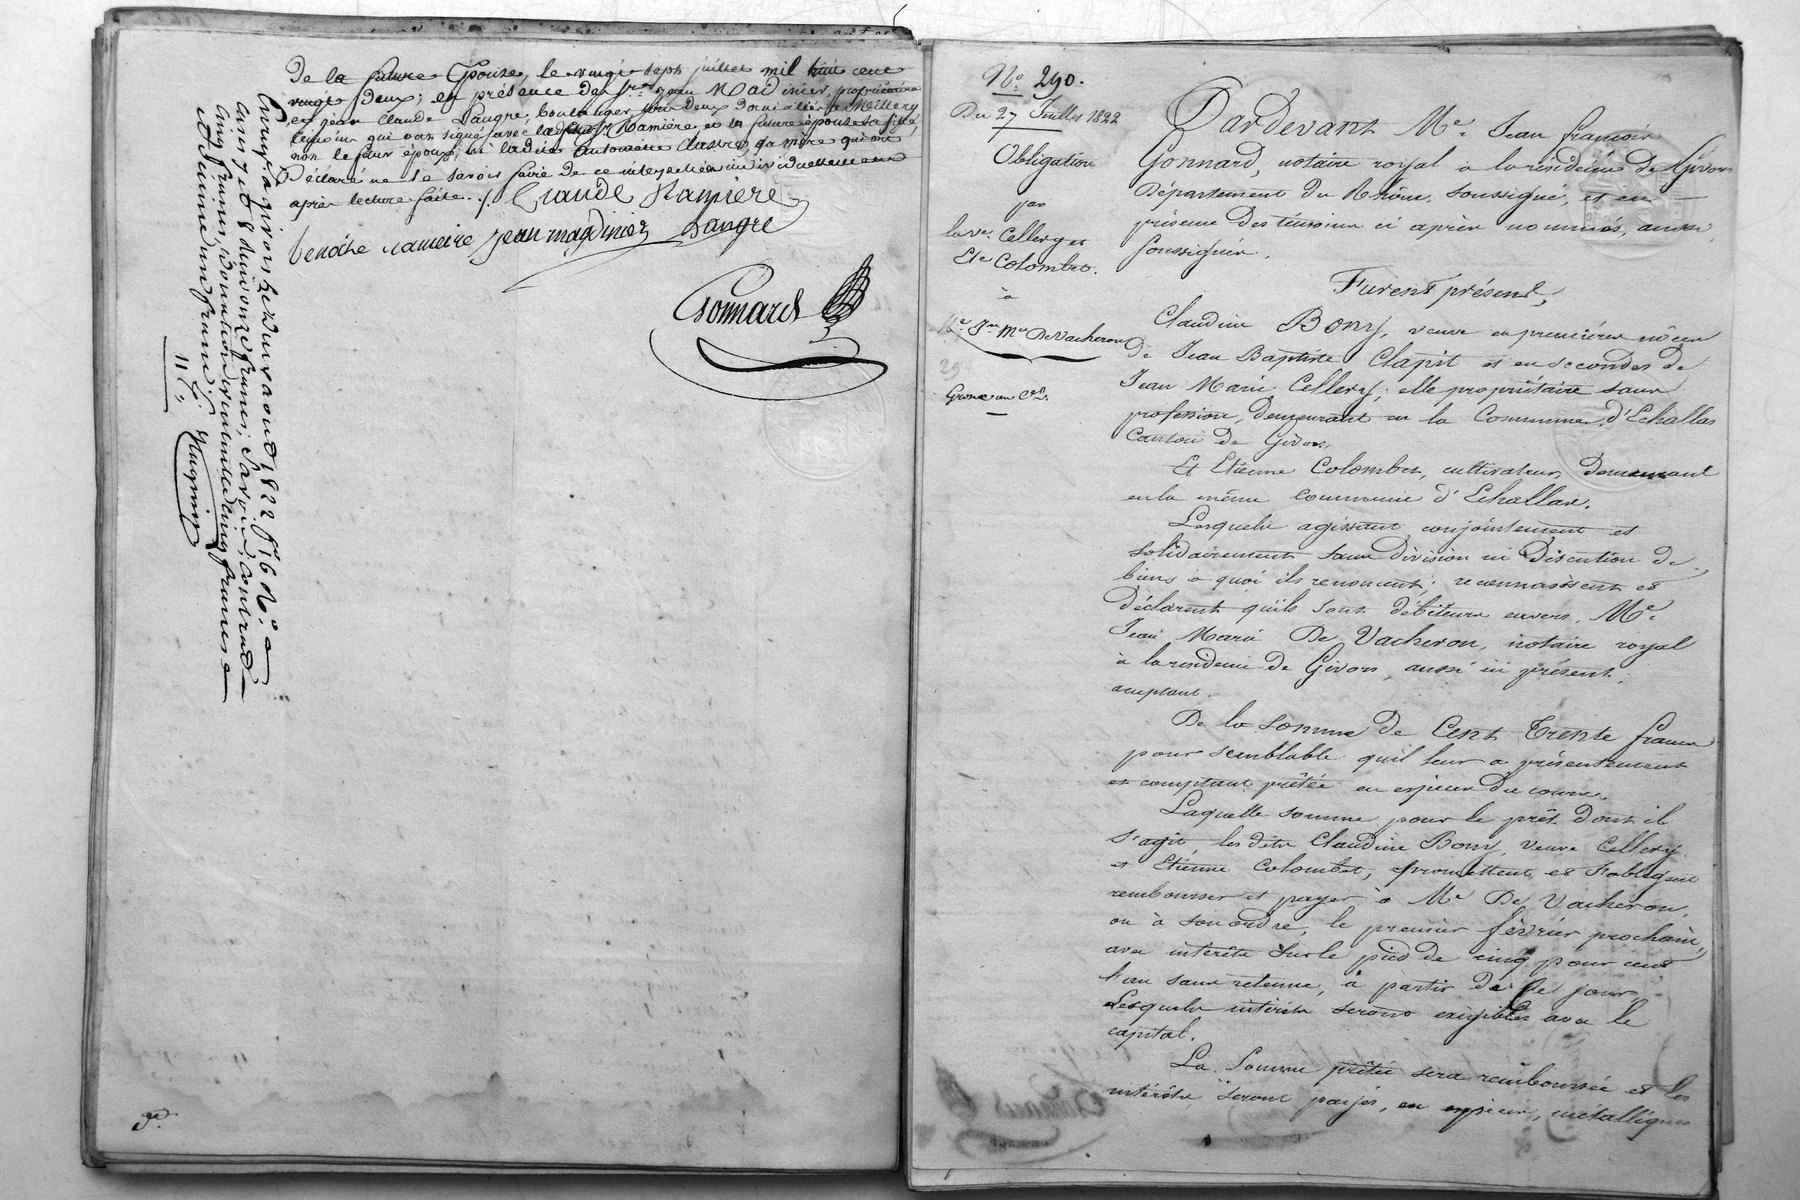 De la future Epouse, le vingt sept juillet mil huit cent
vingt Deux; en présence des Srs jean Magdinier, propriétaire
et jean Claude Laugre, boulanger, tous Deux domiciliés à Millery
témoins qui ont signé avec Ramière et la future épouse sa fille,
non le futur époux, ni ladite Antoinette Clastre, sa mère qui ont
Déclaré ne le savoir faire de ce interpellés individuellement
après lecture faite ./. Claude Ramiere
benoîte rameire jean magdinier Laugre
Gonnard
Enreg. à givors le Deux aout 1822 f° 160 R° c
cases 7 et 8 Reçu onze francs; Savoir, contrat
cinq francs, Donation éventuelle cinq francs et
et Dixieme un franc
9e.
N° 290.
Du 27 Juillet 1822
Obligation
par
la ve. Cellery et
Ete Colombet.
à
Me Jn Mie De Vacheron
Grosse au Cen.
Pardevant Me. Jean françois
Gonnard, notaire royal à la résidence de Givors
Département du Rhône, soussigné, et en
présence des témoins ci après nommés, aussi
soussignés.
Furent présents,
Claudine Bony, veuve en premières nôces
de Jean Baptiste Clapit et en secondes de
Jean Marie Cellery; elle propriétaire sans
profession, demeurant en la Commune d'Echallas
Canton de Givors,
Et Etienne Colombet, cultivateur, demeurant
en la même commune d'Echallas.
Lesquels agissant conjointement et
solidairement sans division ni Discution de
biens à quoi ils renoncent; reconnaissent et
Déclarent qu'ils sont débiteurs envers Me
Jean Marie De Vacheron, notaire royal
à la résidence de Givors, aussi ici présent;
acceptant.
De la somme de Cent Trente francs
pour semblable qu'il leur a présentement
et comptant prêtée en espèces du cours.
Laquelle somme pour le prêt dont il
s'agit, les dits Claudine Bony, veuve Cellery
et Etienne Colombet, promettent et s'obligent
rembourser et payer à Me De Vacheron,
ou à son ordre, le premier février prochain,
avec intérêts sur le pied de cinq pour cent
l'an sans retenue, à partir de ce jour.
Lesquels intérêts seront exigibles avec le
capital.
La Somme prêtée sera remboursée et les
intérêts seront payés, en espèces, métalliques